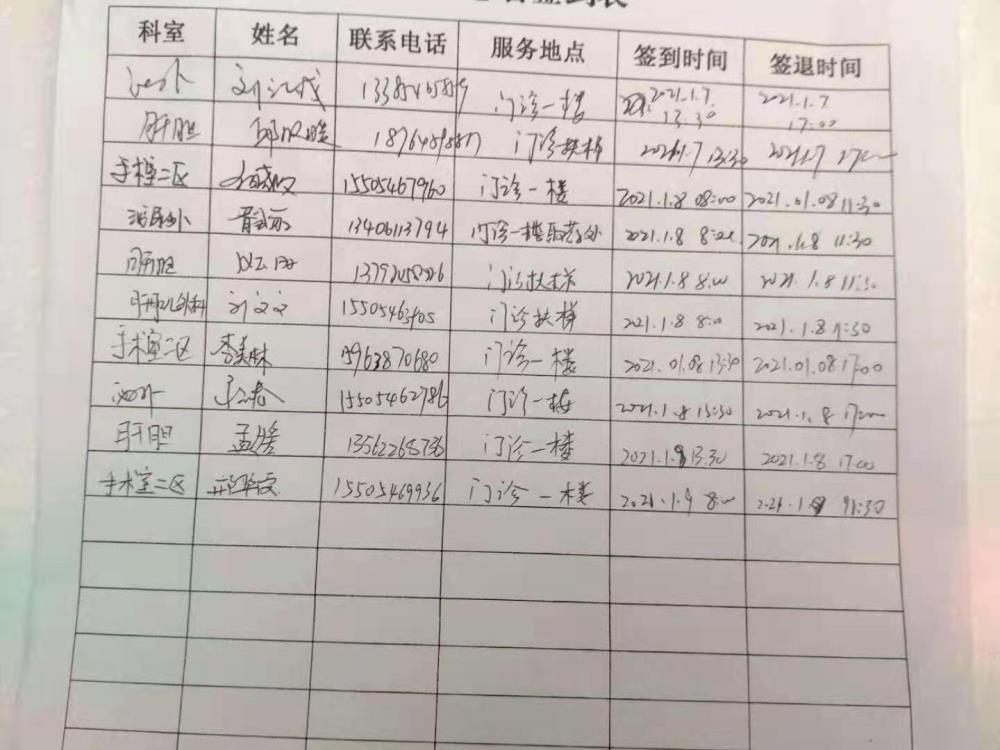 科室 姓名 联系电话 服务地点 签到时间 签退时间
门诊一楼 2021.1.7. 13.30 2021.1.7 17:00
肝胆 门诊扶梯 2021.1.7 13:30 2021.1.7
手术室二区 15505467960 门诊一楼 2021.1.8 08:00 2021.01.08 11:30
泌尿外 13406113794 门诊一楼取药处 2021.1.8 8:00 2021.1.8 11:30
肝胆 门诊扶梯 2021.1.8 8:00 2021.1.8 11:30
刘文文 15505463905 门诊扶梯 2021.1.8 8:00 2021.1.8 11:30
手术室二区 李美林 15963870680 门诊一楼 2021.01.08 13:30 2021.01.08 17:00
泌外 15505462786 门诊一楼 2021.1.8 13:30 2021.1.8 17:00
肝胆 孟媛 13562268736 门诊一楼 2021.1.8 13.30 2021.1.8 17:00
手术室二区 15505469936 门诊一楼 2021.1.9 8:00 2021.1.9 11:30